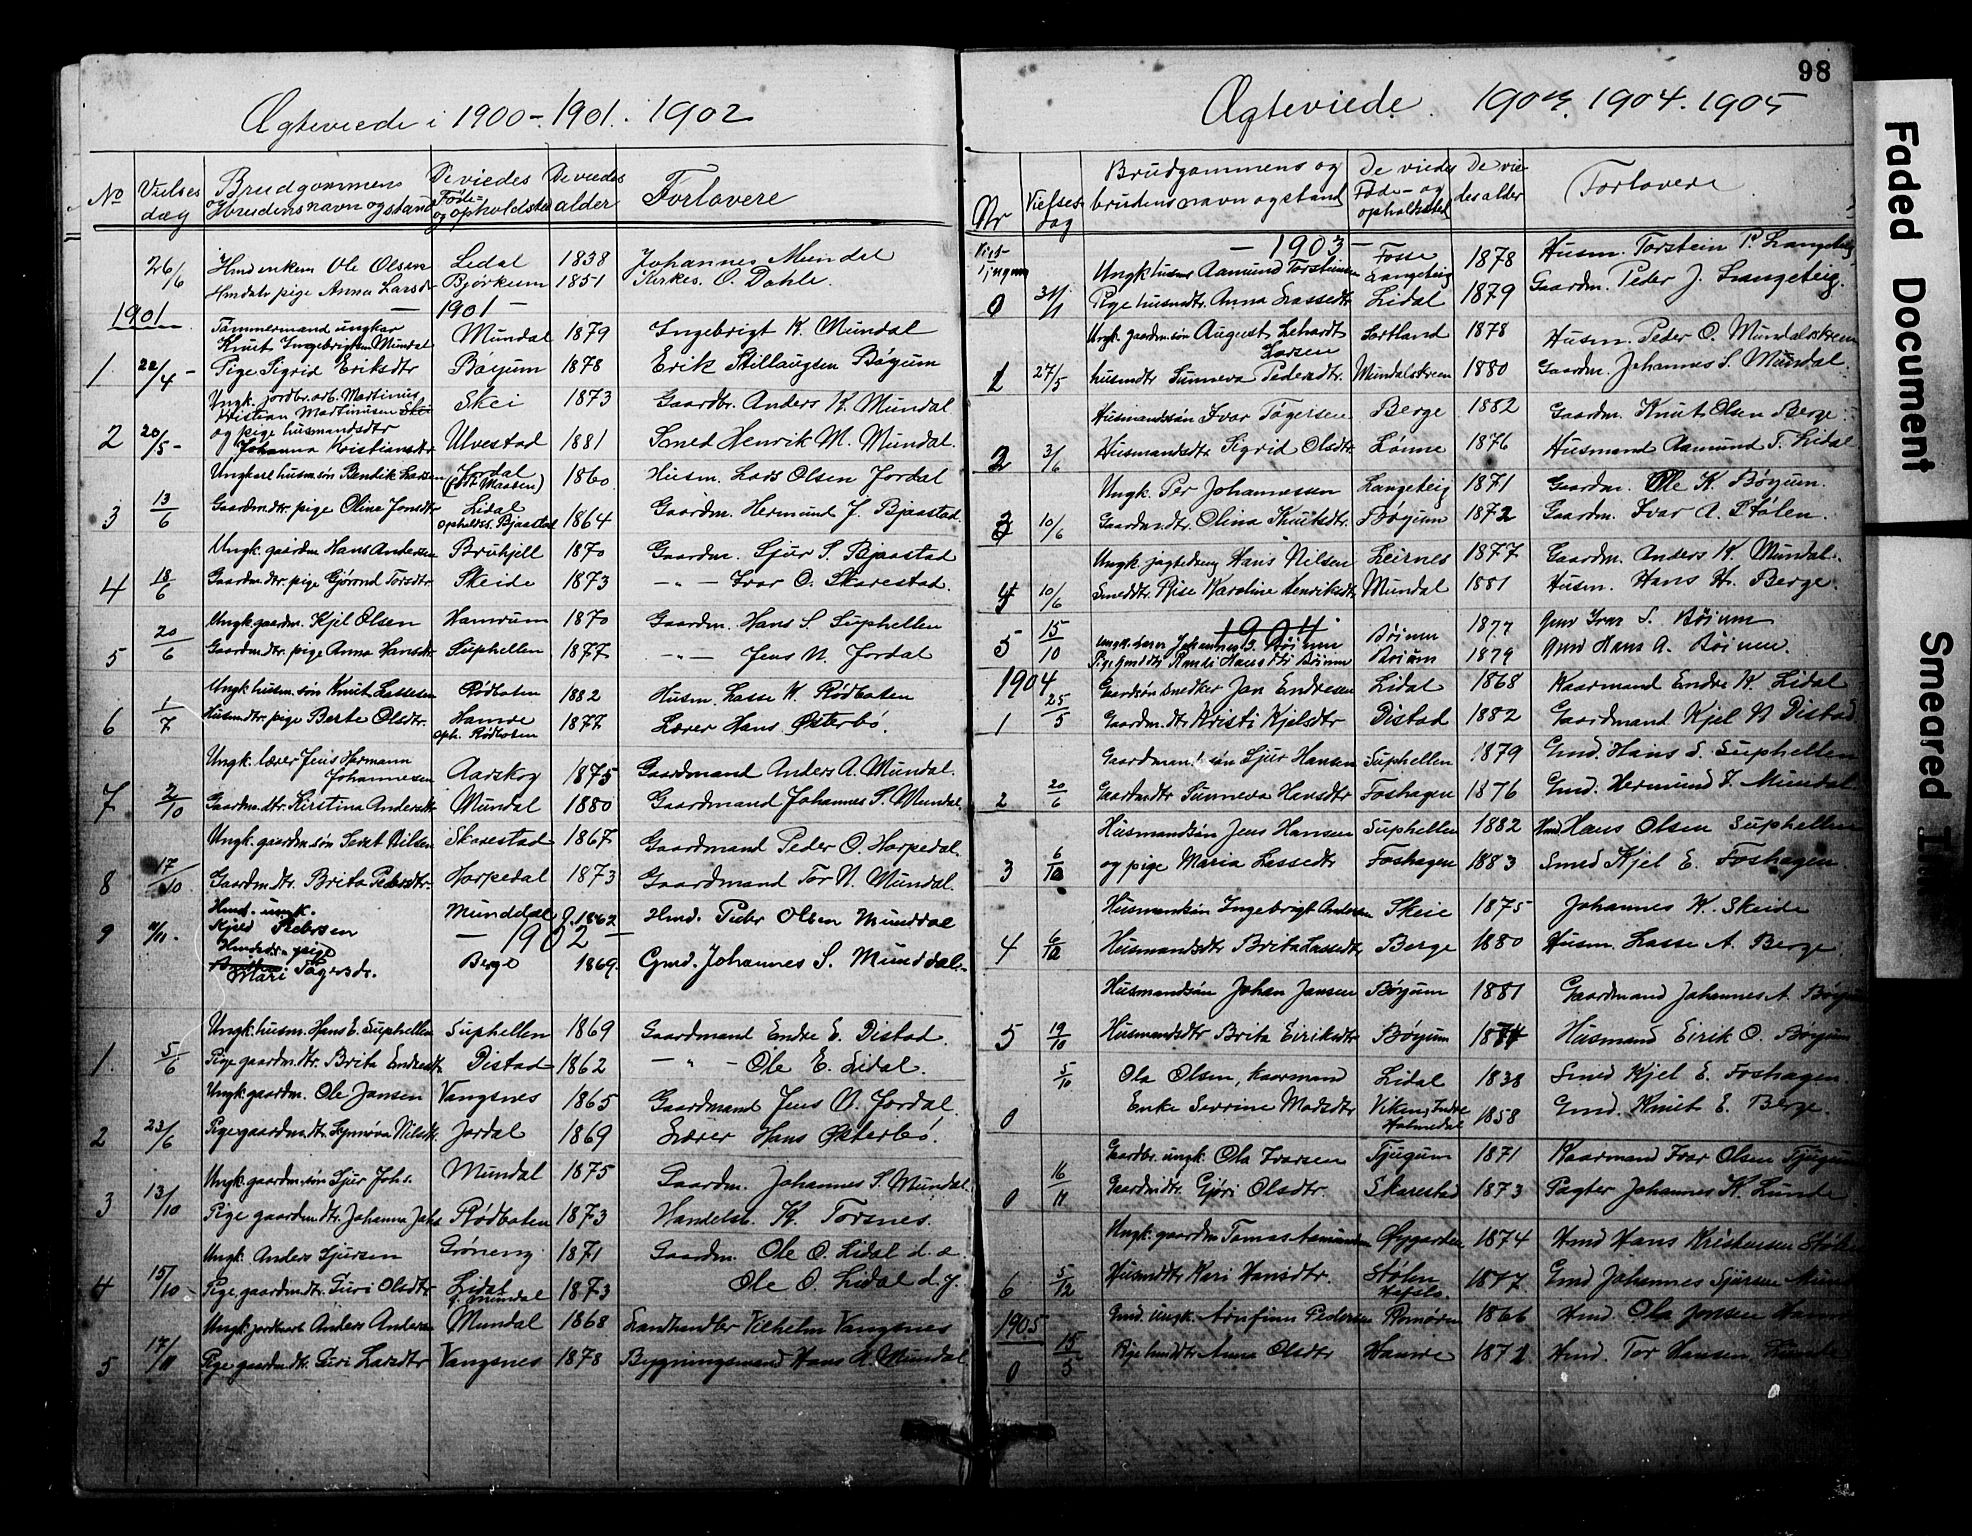 98
Faded Document
Smeared Ink
Ægteviede i 1900-1901. 1902
No Vielses dag Brudgommens og brudens navn og stand De viedes Føde- og opholdsted De viedes alder Forlovere
26/6 Ole Olsen Lidal 1838 Johannes Mundal
pige Anna Larsdr Bjørkum 1851 Kirkes. O. Dahle.
1901 — 1901 —
Tømmermand ungkar
Knut Ingebrigtsen Mundal Mundal 1879 Ingebrigt K. Mundal
1. 22/4 - Pige Sigrid Eriksdtr Bøyum 1878 Erik Stillaugsen Bøyum
Ungk. jordbr. arb. Martinus
Kristian Martinusen Skei Skei 1873 Gaardbr. Anders K. Mundal
og pige husmandsdtr
2 20/5 - Johanna Kristiansdtr Ulvestad 1881 Smed Henrik M. Mundal.
Ungkarl husm.søn Bendik Larsen Jordal 1860. Husm. Lars Olsen Jordal
3 13/6 Gaardm.dtr. pige Oline Jonsdtr Lidal opholdss. Bjaastad 1864 Gaardm. Hermund J. Bjaastad.
Ungk. gaardm Hans Andersen 1870 Gaardm. Sjur S. Bjaastad
4 18/6 Gaardm.dtr. pige Gjørond Torsdtr Skeide 1873 —"— Ivar O. Skarestad.
Ungk. gaardm. Kjel Olsen Hamrum 1870 Gaardm. Hans S. Suphellen
5 20/6 Gaardm.dtr. pige Anna Hansdtr Suphellen 1877 —"— Jens N. Jordal
Ungk husm. søn Knut Lassesen Rødboten 1882 Husm. Lasse K. Rødboten
6 1/7 Husm.dtr. pige Berte Olsdtr. Hamre oph. Rødboten 1877 Lærer Hans Østerbø.
Ungk. lærer Jens Hermann
Johannesen Aarskog 1875 Gaardmand Anders A. Mundal.
7 2/10 Gaardm.dtr. Kirstina Andersdtr Mundal 1880 Gaardmand Johannes S. Mundal.
Ungk. gaardm. søn Sivert Nilsen Skarestad 1867 Gaardmand Peder O. Horpedal.
8 17/10. Gaardm.dtr. Brita Pedersdtr. Horpedal 1873 Gaardmand Tor N. Mundal.
Hmd. ungk.
9 11/11. Kjeld Pedersen Munddal g. 1862 Hmd. Peder Olsen Munddal
— 1902 —
pige
Mari Tøgersdr. Berge 1869. Gmd. Johannes S. Munddal.
Ungk. husm. Hans E. Suphellen Suphellen 1869 Gaardmand Endre E. Distad
1. 5/6 Pige gaardm.dtr. Brita Endresdtr Distad 1862 —"— Ole E. Lidal.
Ungk. gaardm. Ole Jansen Vangsnes 1865 Gaardmand Jens O. Jordal.
2 23/6 Pige gaardm.dtr. Synnøva Nilsdtr. Jordal 1869 Lærer Hans Østerbø.
Ungk. gaardm. søn Sjur Johs. Mundal 1875 Gaardm. Johannes S. Mundal.
3 13/10 Pige gaardm.dtr. Johanna Johs Rødboten 1873 Handelsb. K. Torsnes.
Ungk. Anders Sjursen Grøneng 1871 Gaardm. Ole O. Lidal d. æ.
4 15/10 - Pige gaardm.dtr. Guri Olsdtr Lidal f. Mundal 1873 Ole O. Lidal d. y.
Ungk. jordarb Anders Andersen Mundal 1868 Landhandler Vilhelm Vangsnes
5 17/11 Pige gaardm.dtr. Guri Larsdtr Vangsnes 1878 Bygningsmand Hans A. Mundal
Ægteviede. 1903. 1904. 1905
Nr Vielses dag Brudgommens og brudens navn og stand De viedes Føde- og opholdssted De viedes alder Forlovere
— 1903 —
Viet i Tjugum Ungk husm Aamund Torsteinsen Fosse Langeteig 1878 Husm. Torstein P. Langeteig
0 31/1 Pige husmdtr. Anna Lassedtr Lidal 1879 Gaardm. Peder J. Langeteig.
Ungk. gaardm. søn August Lehardt
Larsen Sortland 1878 Husm. Peder O. Mundalskreen
1 27/5 husmdtr Sunneva Pedersdtr. Mundalskreen 1880 Gaardm. Johannes S. Mundal.
Husmandssøn Ivar Tøgersen Berge 1882 Gaardm. Knut Olsen Berge
2 3/6 Husmandsdtr Sigrid Olsdtr. Lønne 1876 Husmand Aamund T. Lidal
Ungk. Per Johannessen Langeteig 1871 Gaardm. Ole K. Bøyum.
3 10/6 Gaardm.dtr. Olina Knutsdtr. Bøyum 1872 Gaardm. Ivar A. Stølen.
Ungk Hans Nilsen Leirnes 1877 Gaardm. Anders K. Mundal.
4 10/6 Smeddtr. Pige Karoline Henriksdtr Mundal 1881 Husm. Hans H. Berge.
1904
5 15/10 Johannes I. Bøium Bøium 1877 Gmd Ivar S. Bøium
Pige Gmddtr Randi Hansdtr Bøium Bøium 1879 Gmd Hans A. Bøium.
1904 Gaardsøn snedker Jan Endresen Lidal 1868 Kaarmand Endre K. Lidal
1 25/5 Gaardm.dtr Kristi Kjelsdtr Distad 1882 Gaardmand Kjel N Distad
Gaardmandssøn Sjur Hansen Suphellen 1879 Gmd. Hans S. Suphellen
2 20/6 Gaardm.dtr Sunneva Hansdtr Foshagen 1876 Gmd. Hermund J. Mundal
Husmandsøn Jens Hansen Suphellen 1882 Hmd Hans Olsen Suphellen
3 6/10 og pige Maria Lassedtr Foshagen 1883 Smed Kjel E. Foshagen
Husmandsøn Ingebrigt Andersen Skeie 1875 Johannes K. Skeide
4 6/12 Husmandsdtr Brita Lassedtr Berge 1880 Husm. Lasse A. Berge.
Husmandsøn Johan Jansen Bøyum 1881 Gaardmand Johannes A. Bøyum
5 19/10 Husmandsdtr Brita Eiriksdtr Bøyum 1874 Husmand Eirik O. Bøyum
5/10 Ola Olsen, kaarmand Lidal 1838 Smed Kjel E. Foshagen.
0 Enke Serrine Madsdtr Viken, Indre Holmedal 1858 Gmd. Knut E. Berge.
Gaardbr. ungk. Ola Ivarsen Tjugum 1871 Kaarmand Ivar Olsen Tjugum
0 16/11 Gaardmdtr. Gjøri Olsdtr. Skarestad 1873 Pagter Johannes K. Lunde
Ungk. gaardm Tomas Aamundsen Øygarden 1874 Hmd Hans Kristensen Stølen
6 5/12 Husmddtr Kari Hansdtr. Stølen Hafslo. 1877. Gmd Johannes Sjursen Mundal
1905 Gmd. ungk. Arnfinn Pedersen Romøren 1866 Hmd. Ola Jonsen Hamre
0 15/5 Pige hmddtr Anna Olsdtr Hamre 1872. Hmd. Tor Hansen Lunde